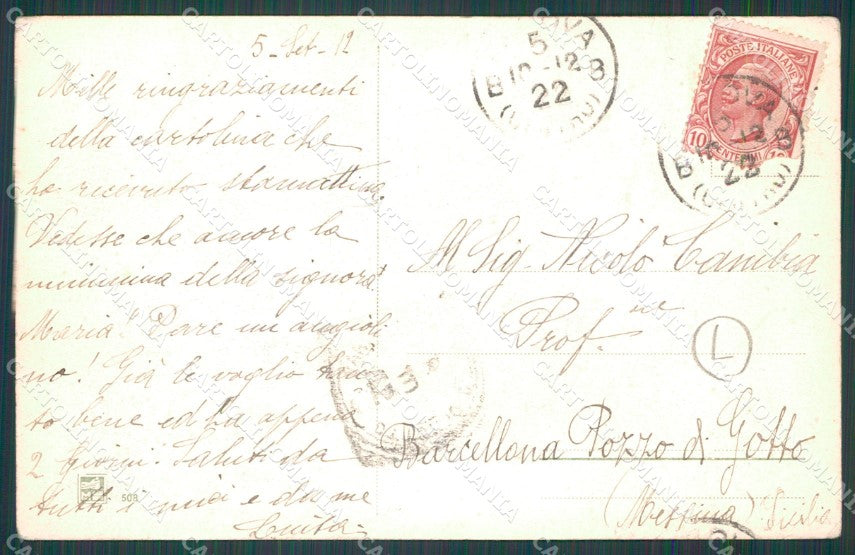 5-Set-12
Mille ringraziamenti
della cartolina che
ho ricevuto stamattina
Vedesse che amore la
mimmina della signora
Maria! Pare un angioli
no! Già le voglio tan
to bene ed ha appena
2 giorni. Saluti da
tutti i miei e da me
Luisa
508
5
10-12
B
22
POSTE ITALIANE
10
22
Al Sig. Nicolò Cambia
Prof.
L
Barcellona Pozzo di Gotto
(Messina) Sicilia
CARTOLINOMANIA